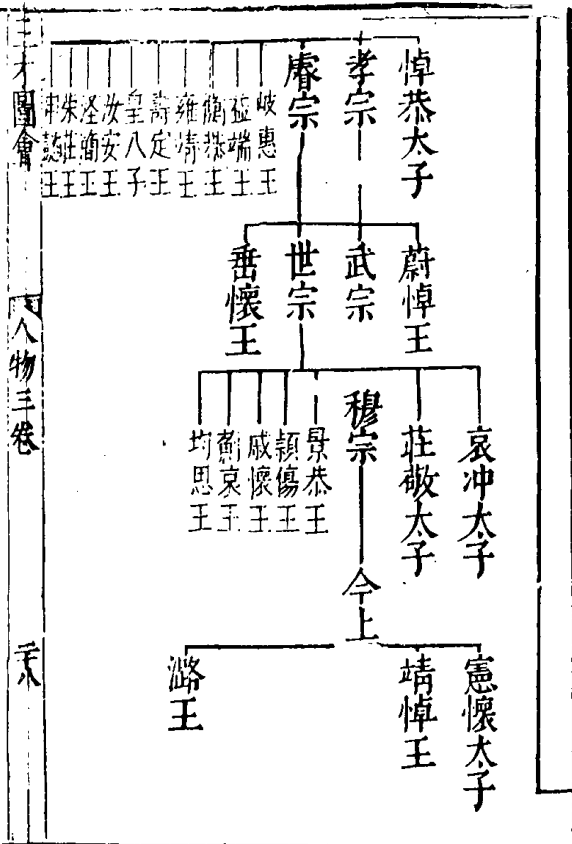 悼恭太子
孝宗
睿宗
岐惠王
益端王
衡恭王
雍靖王
壽定王
皇八子
汝安王
涇簡王
朱莊王
申懿王
蔚悼王
武宗
世宗
岳懷王
哀冲太子
莊敬太子
穆宗
景恭王
潁傷王
戚懷王
薊哀王
均思王
今上
憲懷太子
靖悼王
潞王
三才圖會
人物三卷